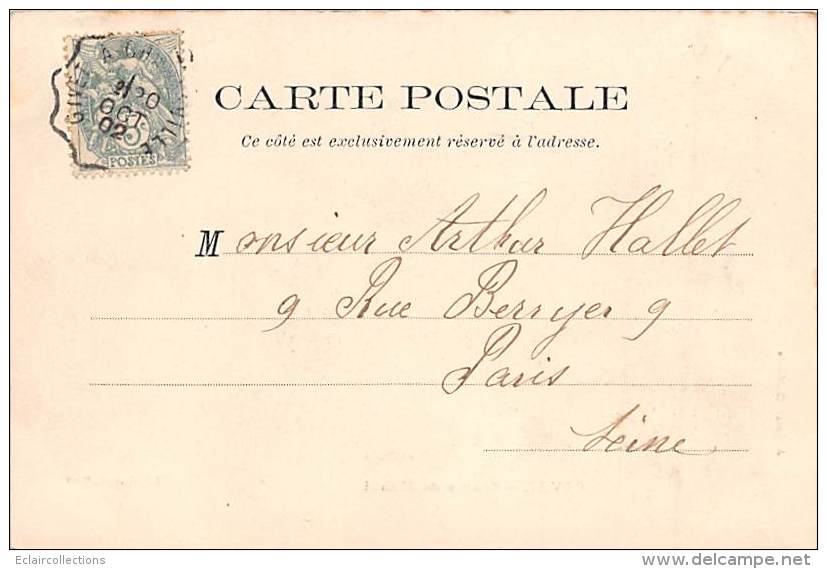 GIVET A CH
20
OCT
02
5c
POSTES
CARTE POSTALE
Ce côté est exclusivement réservé à l'adresse.
Monsieur Arthur Hallet
9 Rue Berryer 9
Paris
Seine
Eclaircollections
www.delcampe.net